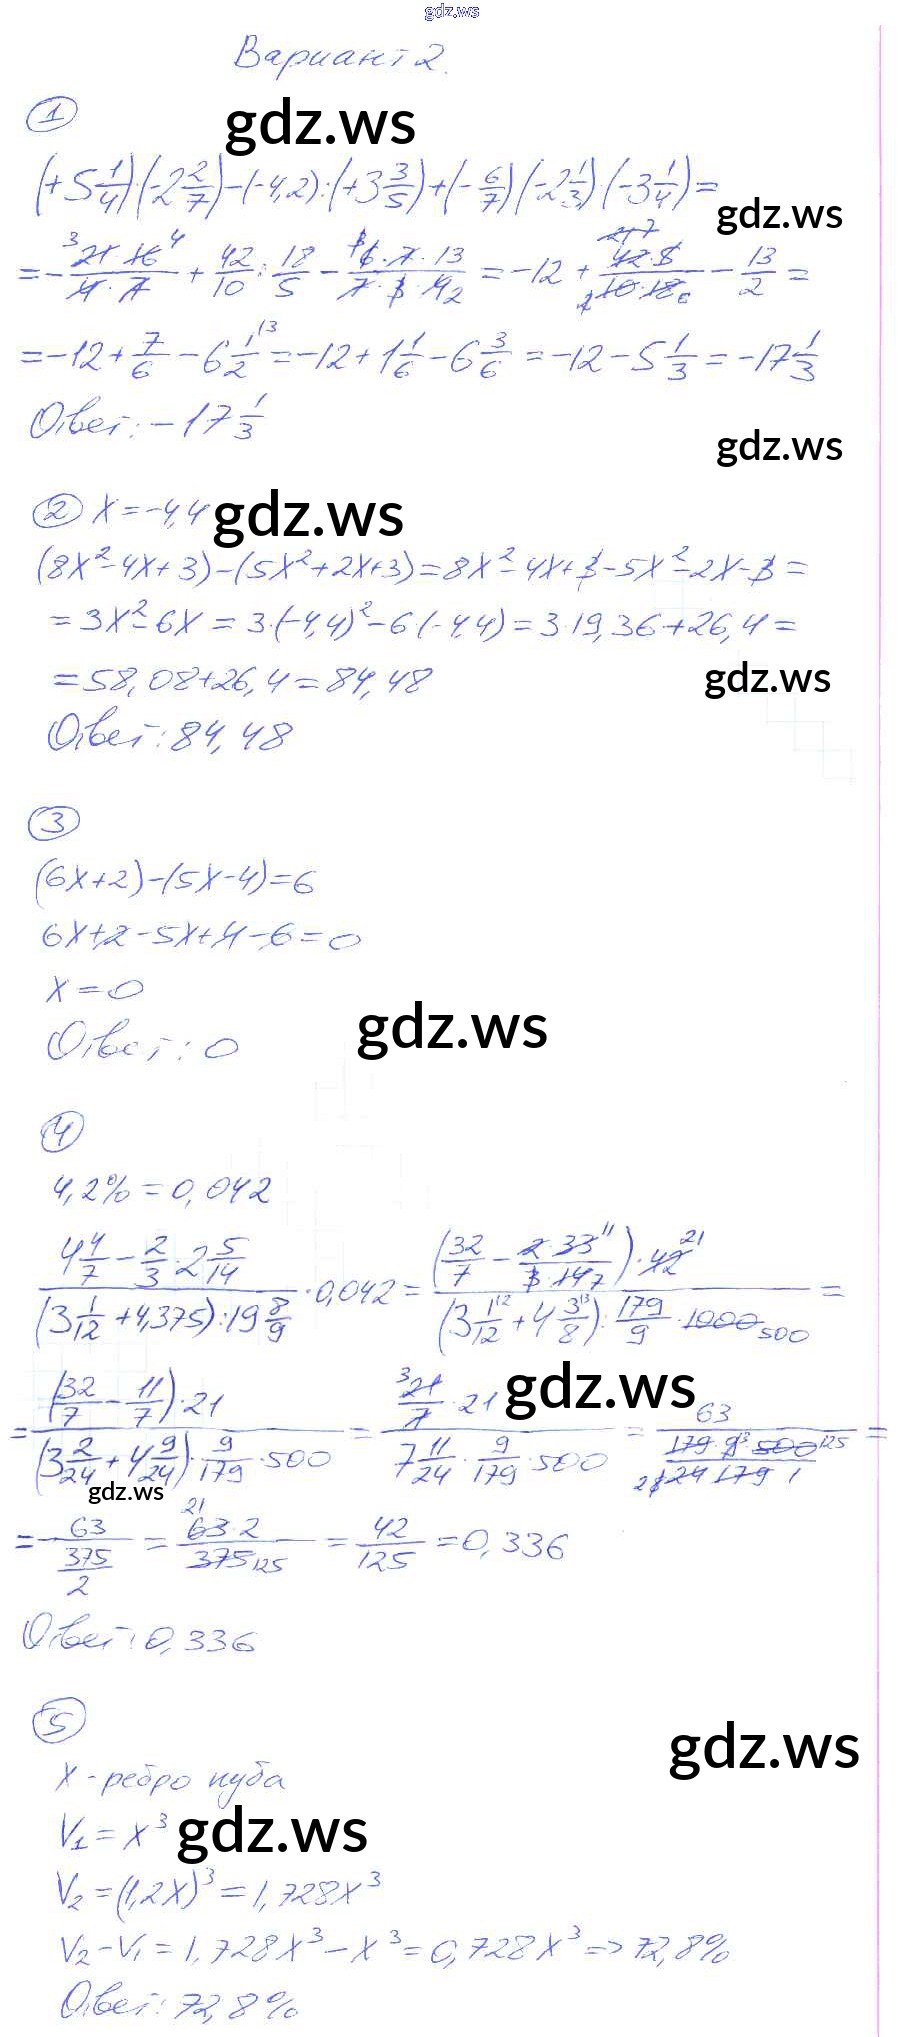 gdz.ws
Вариант 2.
1
gdz.ws
(+5 1/4)·(-2 2/7)-(-4,2):(+3 3/5)+(-6/7)(-2 1/3)(-3 1/4)=
gdz.ws
=-(21·16)/(4·7) 3 4 + 42/10 : 18/5 - (6·7·13)/(7·3·4 2) = -12 + (42·5)/(10·18) 21 7 2 6 - 13/2 =
=-12+7/6-6 1/2 ^(3 =-12+1 1/6-6 3/6=-12-5 1/3=-17 1/3
Ответ: -17 1/3
gdz.ws
2 x=-4,4
gdz.ws
(8x²-4x+3)-(5x²+2x+3)=8x²-4x+3-5x²-2x-3=
=3x²-6x=3·(-4,4)²-6(-4,4)=3·19,36+26,4=
=58,08+26,4=84,48
gdz.ws
Ответ: 84,48
3
(6x+2)-(5x-4)=6
6x+2-5x+4-6=0
x=0
gdz.ws
Ответ: 0
4
4,2%=0,042
(4 4/7 - 2/3·2 5/14)/((3 1/12+4,375):19 8/9)·0,042=((32/7 - (2·33 11)/(3·14 7))·42 21)/((3 1/12 ^(2+4 3/8 ^(3):179/9·1000 500)=
gdz.ws
=((32/7-11/7)·21)/((3 2/24+4 9/24)·9/179·500)=(3 21/7·21)/(7 11/24·9/179·500)=63/((179·9 3·500 125)/(2 8 24·179·1))=
gdz.ws
=63/(375/2)=(63 21·2)/(375 125)=42/125=0,336
Ответ: 0,336
5
gdz.ws
x - ребро куба
V₁=x³
gdz.ws
V₂=(1,2x)³=1,728x³
V₂-V₁=1,728x³-x³=0,728x³=>72,8%
Ответ: 72,8%